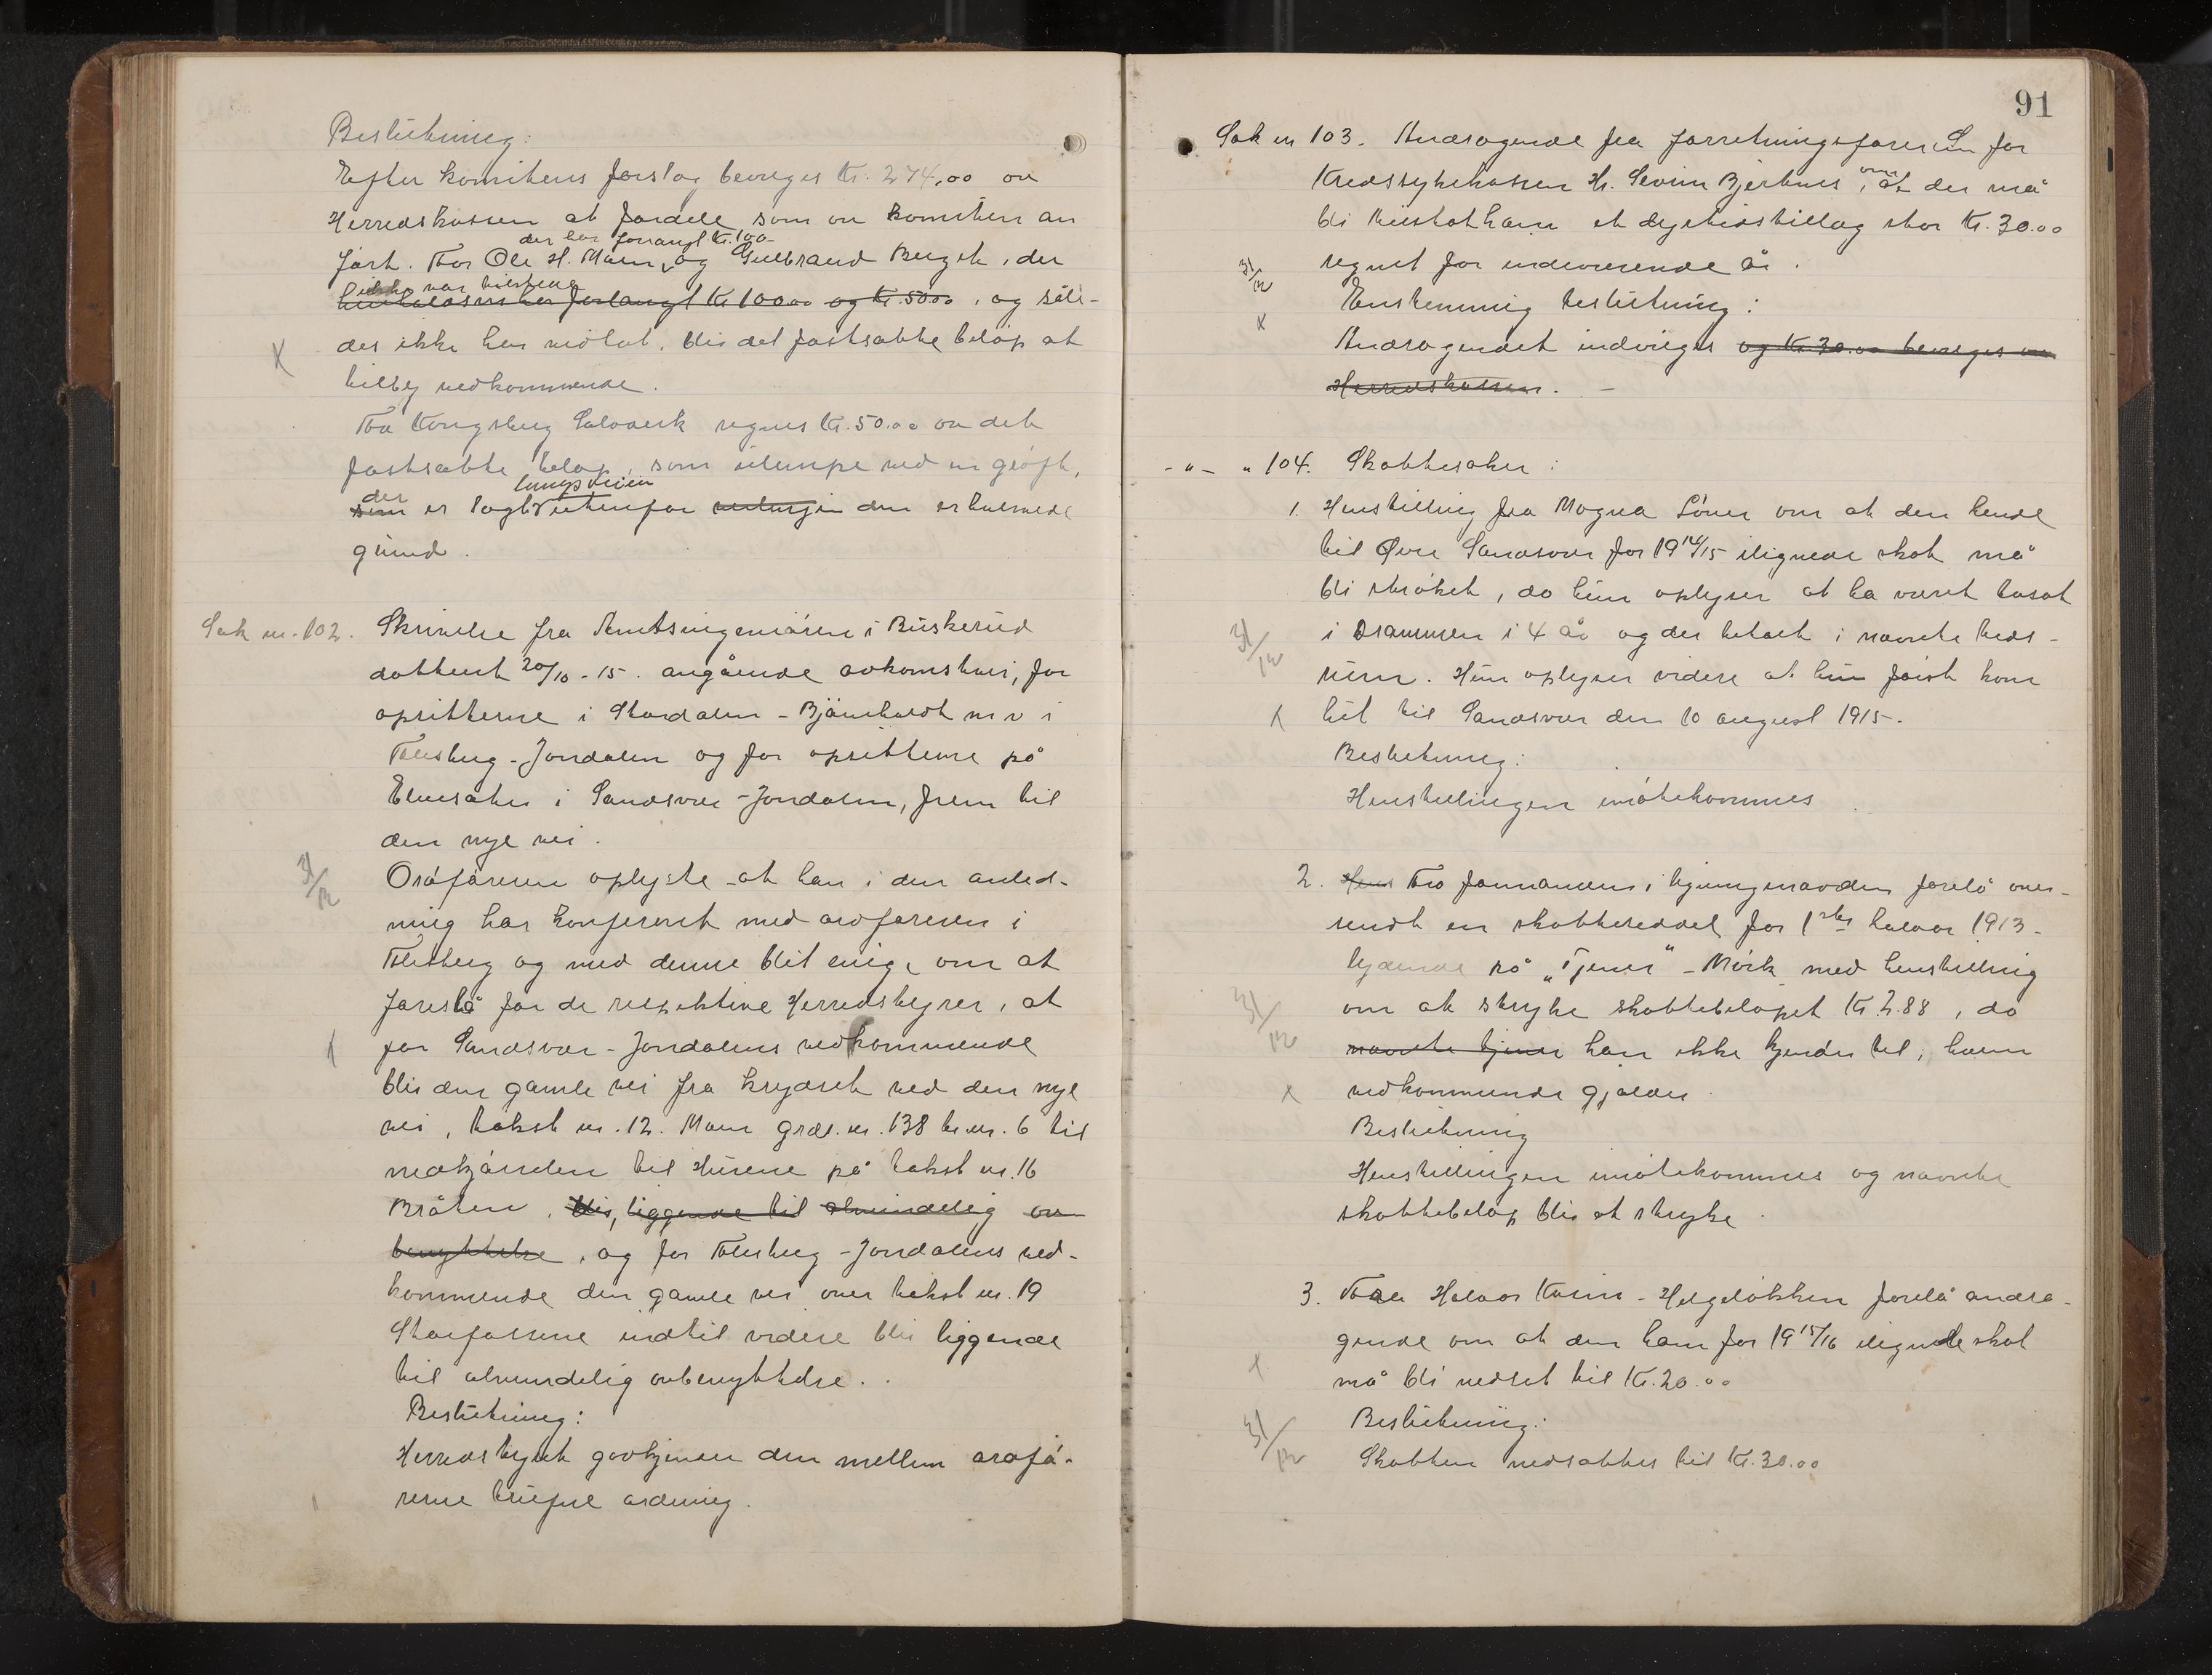 Beslutning:
Efter komiteens forslag bevilges Kr. 274,00 av
Herredskassen at fordele som av komiteen an
der har forlangt Kr. 100
ført. For Ole H. Moen, og Gulbrand Berget, der
ikke var tilstede
henholdsvis har forlangt Kr 100.00 og Kr. 50.00, og såle-
des ikke har vedtat, blir det fastsatte beløp at
tilby vedkommende.
For Kongsberg Sølvverk regnes Kr. 50.00 av det
fastsatte beløp, som ulempe ved en grøft,
langs veien
der
som er lagt utenfor den erhvervede
grund.
Sak nr. 102. Skrivelse fra Amtsingeniøren i Buskerud
dattert 20/10-15. angående avkomstvei, for
opsitterne i Stordalen - Bjørnholdt m v i
Flesberg-Jondalen og for opsitterne på
i Sandsvær-Jondalen, frem til
den nye vei.
31/12
Ordføreren oplyste at han i den anled-
ning har konferert med ordføreren i
Flesberg og med denne blit enig, om at
foreslå for de respektive Herredstyrer, at
for Sandsvær-Jondalens vedkommende
blir den gamle vei fra krydset ved den nye
vei, takst nr. 12. Moen grds. nr. 138 br. nr. 6 til
nedkjørselen til Husene på takst nr. 16
Bråten. blir, liggende til almindelig av
benyttelse, og for Flesberg-Jondalens ved-
kommende den gamle vei over takst nr. 19
indtil videre blir liggende
til almindelig avbenyttelse.
Beslutning:
Herredstyret godkjender den mellem ordfø-
rerne trufne ordning.
91
Sak nr 103. Andragende fra forretningsføreren for
Kredssykekassen Hr. Severin Bjerknes, om at der må
bli tilstaat ham et dyrtidstillæg stor Kr. 30.00
regnet for indeværende år.
31/12
Enstemmig beslutning:
x
Andragendet indvilges og Kr. 30.00 bevilges av
Herredskassen. -
- " - " 104. Skattesaker:
1. Henstilling fra Magna Löver om at den hende
til Øvre Sandsvær for 1914/15 ilignede skat må
bli strøket, da hun oplyser at ha været bosat
31/12
i Drammen i 4 år og der betalt i nævnte tids-
rum. Hun oplyser videre at hun først kom
hit til Sandsvær den 10 august 1915.
Beslutning:
Henstillingen imøtekommes
2. Hens Fra formanden i ligningsnævnden forelå over-
sendt en skatteseddel for 1ste halvår 1913.
lydende på "Tjener" - Mørk med henstilling
31/12
om at stryke skattebeløpet Kr. 2.88, da
nævnte tjener han ikke kjender til, hvem
x
vedkommende gjælder.
Beslutning
Henstillingen imøtekommes og nævnte
skattebeløp blir at stryke.
3. Fra Halvor - Helgeløkken forelå andra-
gende om at den ham for 1915/16 ilignede skat
x
må bli nedsat til Kr. 20.00
31/12
Beslutning:
Skatten nedsættes til Kr. 30.00